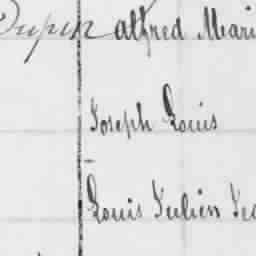 Dupin Alfred Mari
Joseph Louis
Louis Julien